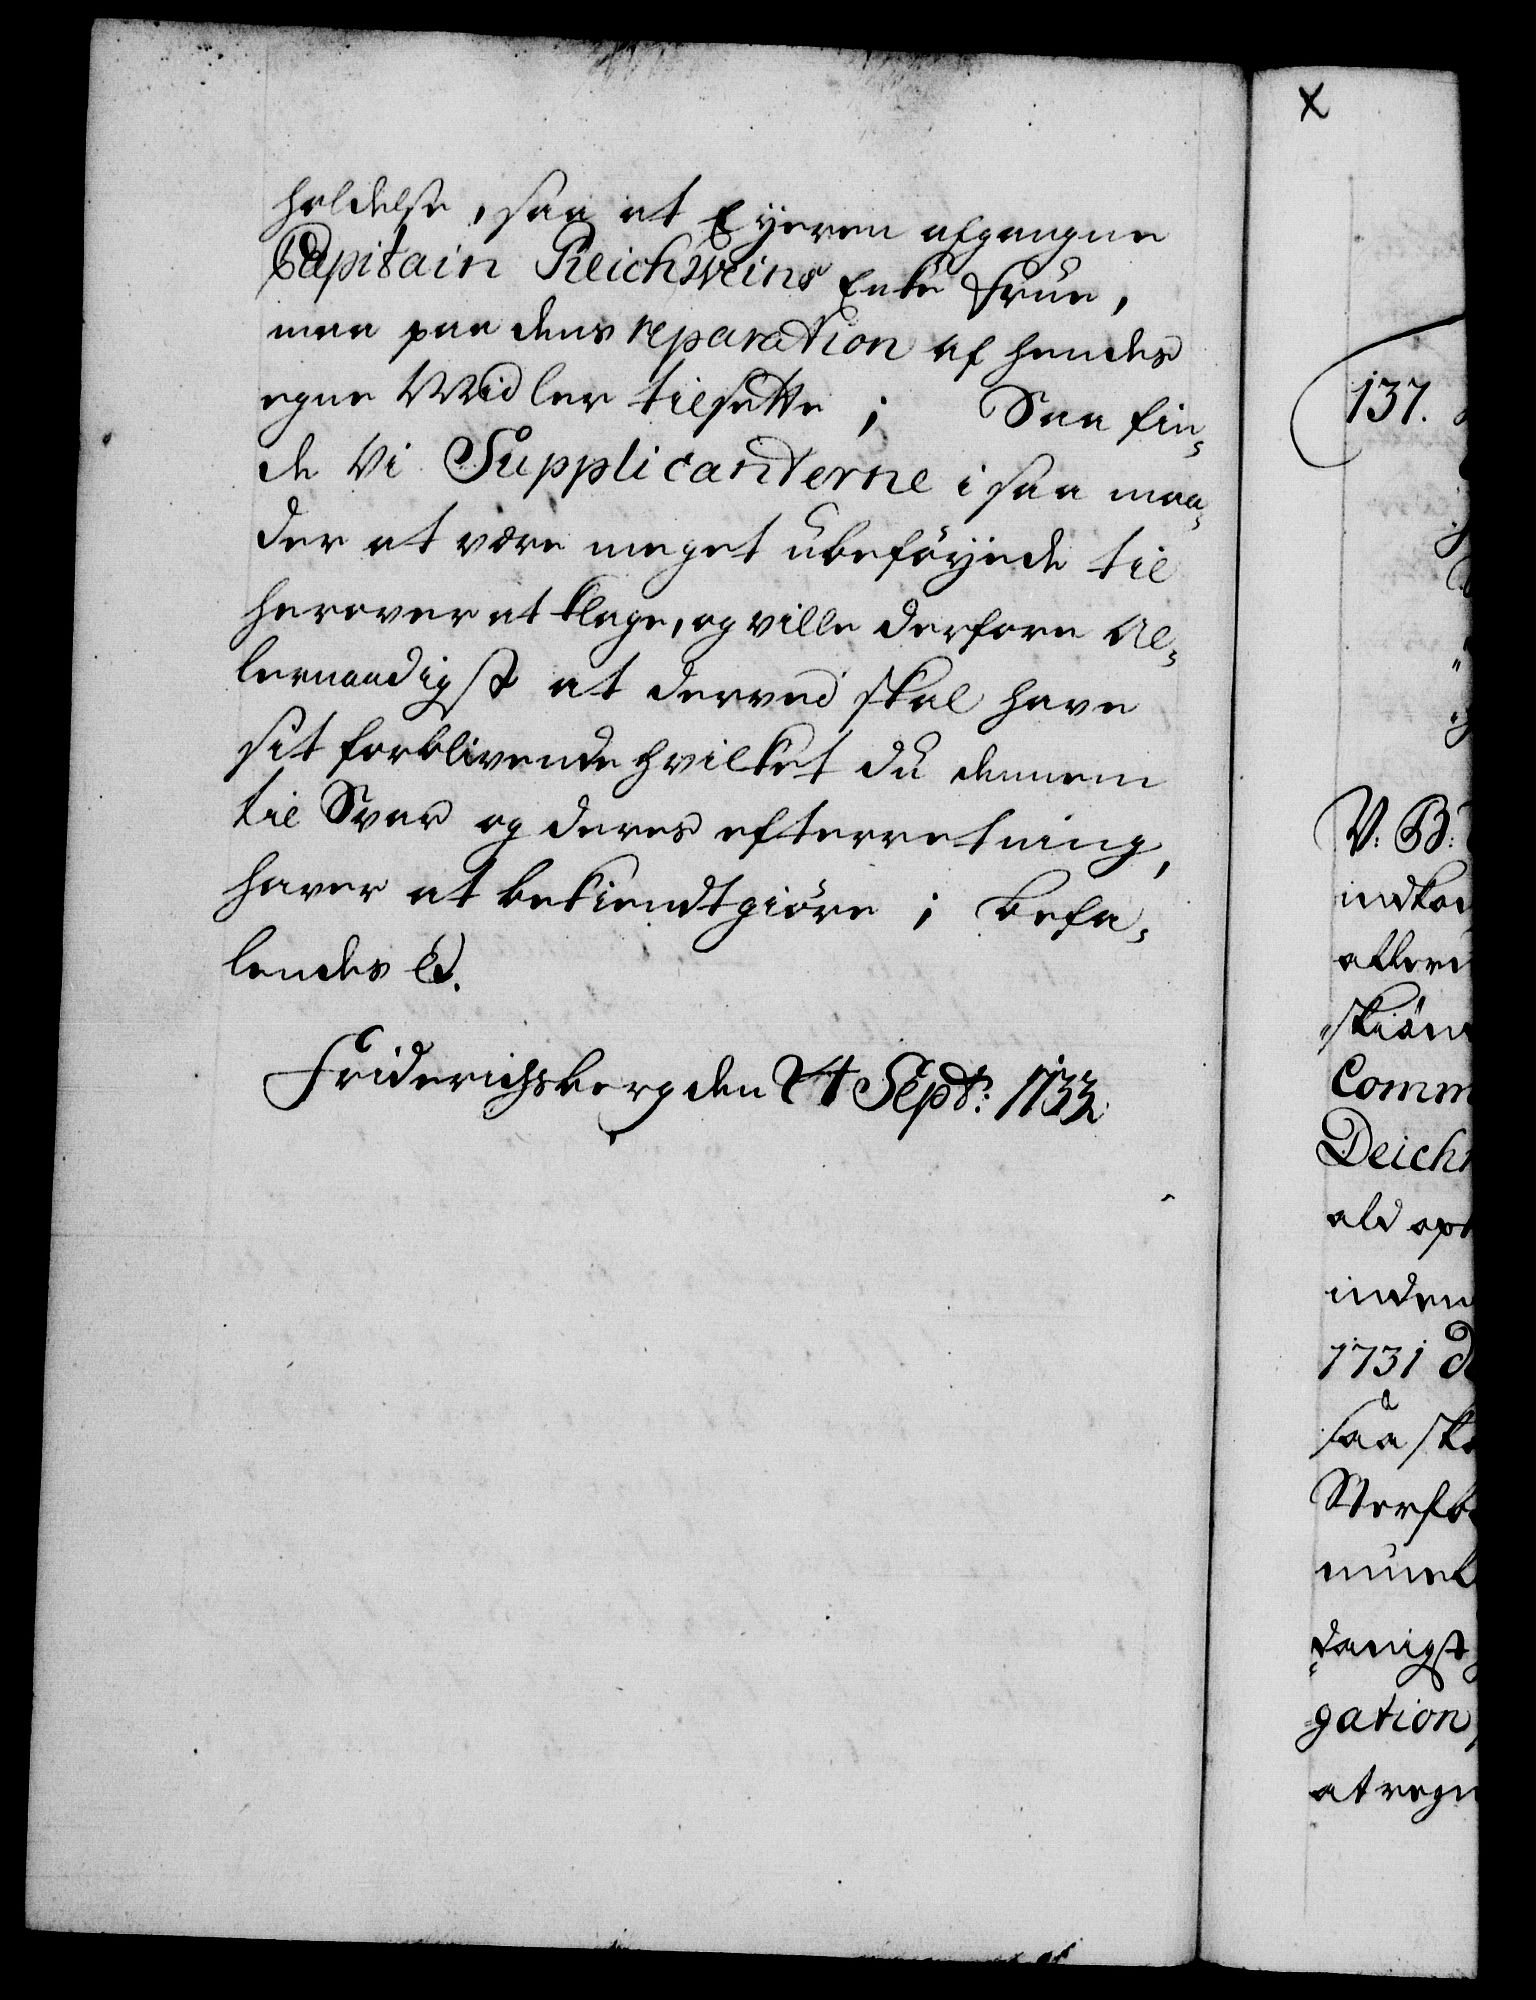 holdelse, saa at Eyeren afgangne
Capitain Reichweins Enke Frue,
maa paa dens reparation af hendes
egne Midler tilsette; Saa fin-
de Vi Supplicanterne i saa maa-
der at være meget ubeföyede til
herover at klage, og ville derfore Al-
lernaadigst at derved skal have
sit forblivende hvilket du dennem
til Svar og deres efterretning,
haver at bekiendtgiöre; befa-
lendes &.
Friderichsberg den 24 Sept: 1733
X
137.
V: B:
indkom
allere
skiön
Comm
Deich
ald op
inden
1731 d
saa sk
Sterfb
muel
danigst
gation
at regn